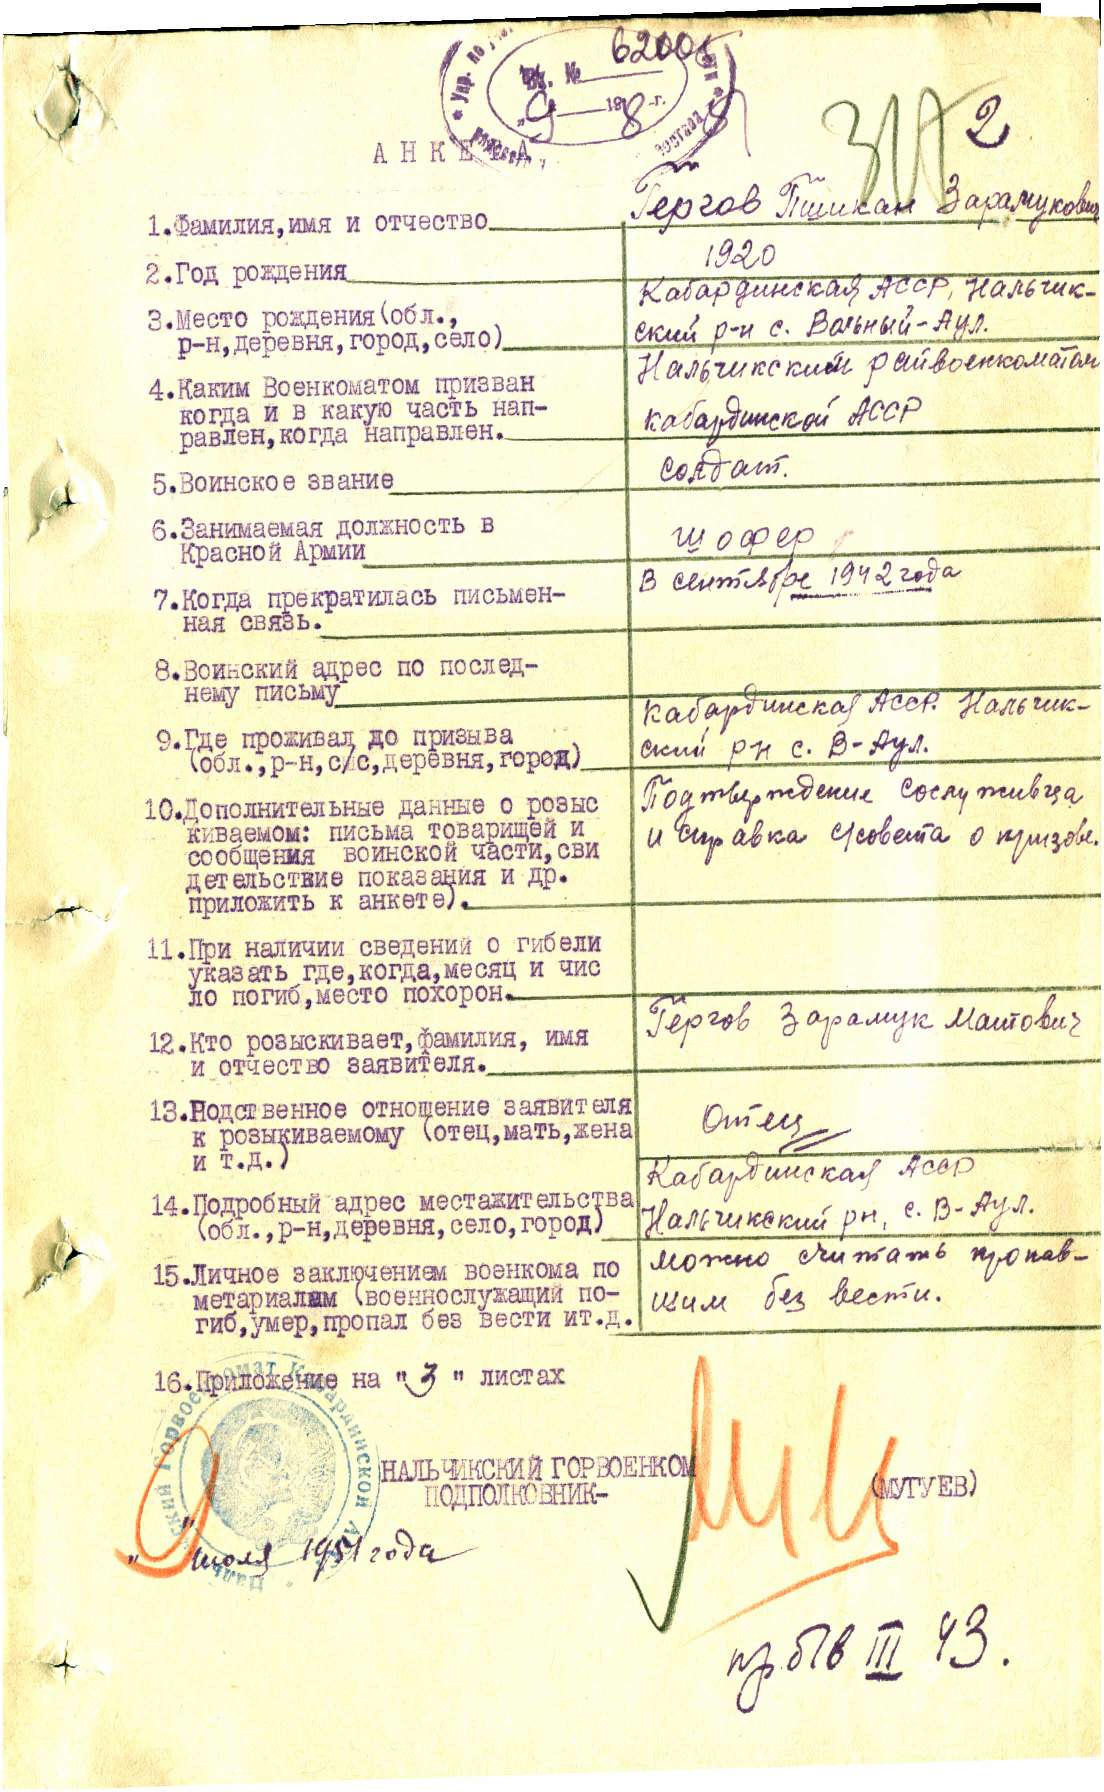 Упр. по
Вх. № 62005
"9" 8 г.
ЗИ 2
АНКЕТА
1.Фамилия,имя и отчество Гергов Пшикан Зарамукович
2.Год рождения 1920
3.Место рождения(обл., Кабардинская АССР, Нальчик-
р-н,деревня,город,село) ский р-н с. Вольный-Аул.
4.Каким Военкоматом призван Нальчикским райвоенкоматом
когда и в какую часть нап- Кабардинской АССР
равлен,когда направлен.
5.Воинское звание солдат.
6.Занимаемая должность в
Красной Армии шофер
7.Когда прекратилась письмен- В сентябре 1942 года
ная связь.
8.Воинский адрес по послед-
нему письму
9.Где проживал до призыва Кабардинская АССР. Нальчик-
(обл.,р-н,с/с,деревня,город) ский рн с. В-Аул.
10.Дополнительные данные о розыс Подтверждение сослуживца
киваемом: письма товарищей и и справка с/совета о призове.
сообщения воинской части,сви
детельствие показания и др.
приложить к анкете).
11.При наличии сведений о гибели
указать где,когда,месяц и чис
ло погиб,место похорон.
12.Кто розыскивает,фамилия, имя Гергов Зарамук Матович
и отчество заявителя.
13.Родственное отношение заявителя
к розыкиваемому (отец,мать,жена Отец
и т.д.)
14.Подробный адрес местажительства Кабардинская АССР
(обл.,р-н,деревня,село,город) Нальчикский рн, с. В-Аул.
15.Личное заключением военкома по Можно считать пропав-
метариалам (военнослужащий по- шим без вести.
гиб,умер,пропал без вести ит.д.
16.Приложение на "3" листах
НАЛЬЧИКСКИЙ ГОРВОЕНКОМ
ПОДПОЛКОВНИК- (МУГУЕВ)
" " июля 1951 года
пр б/в III 43.